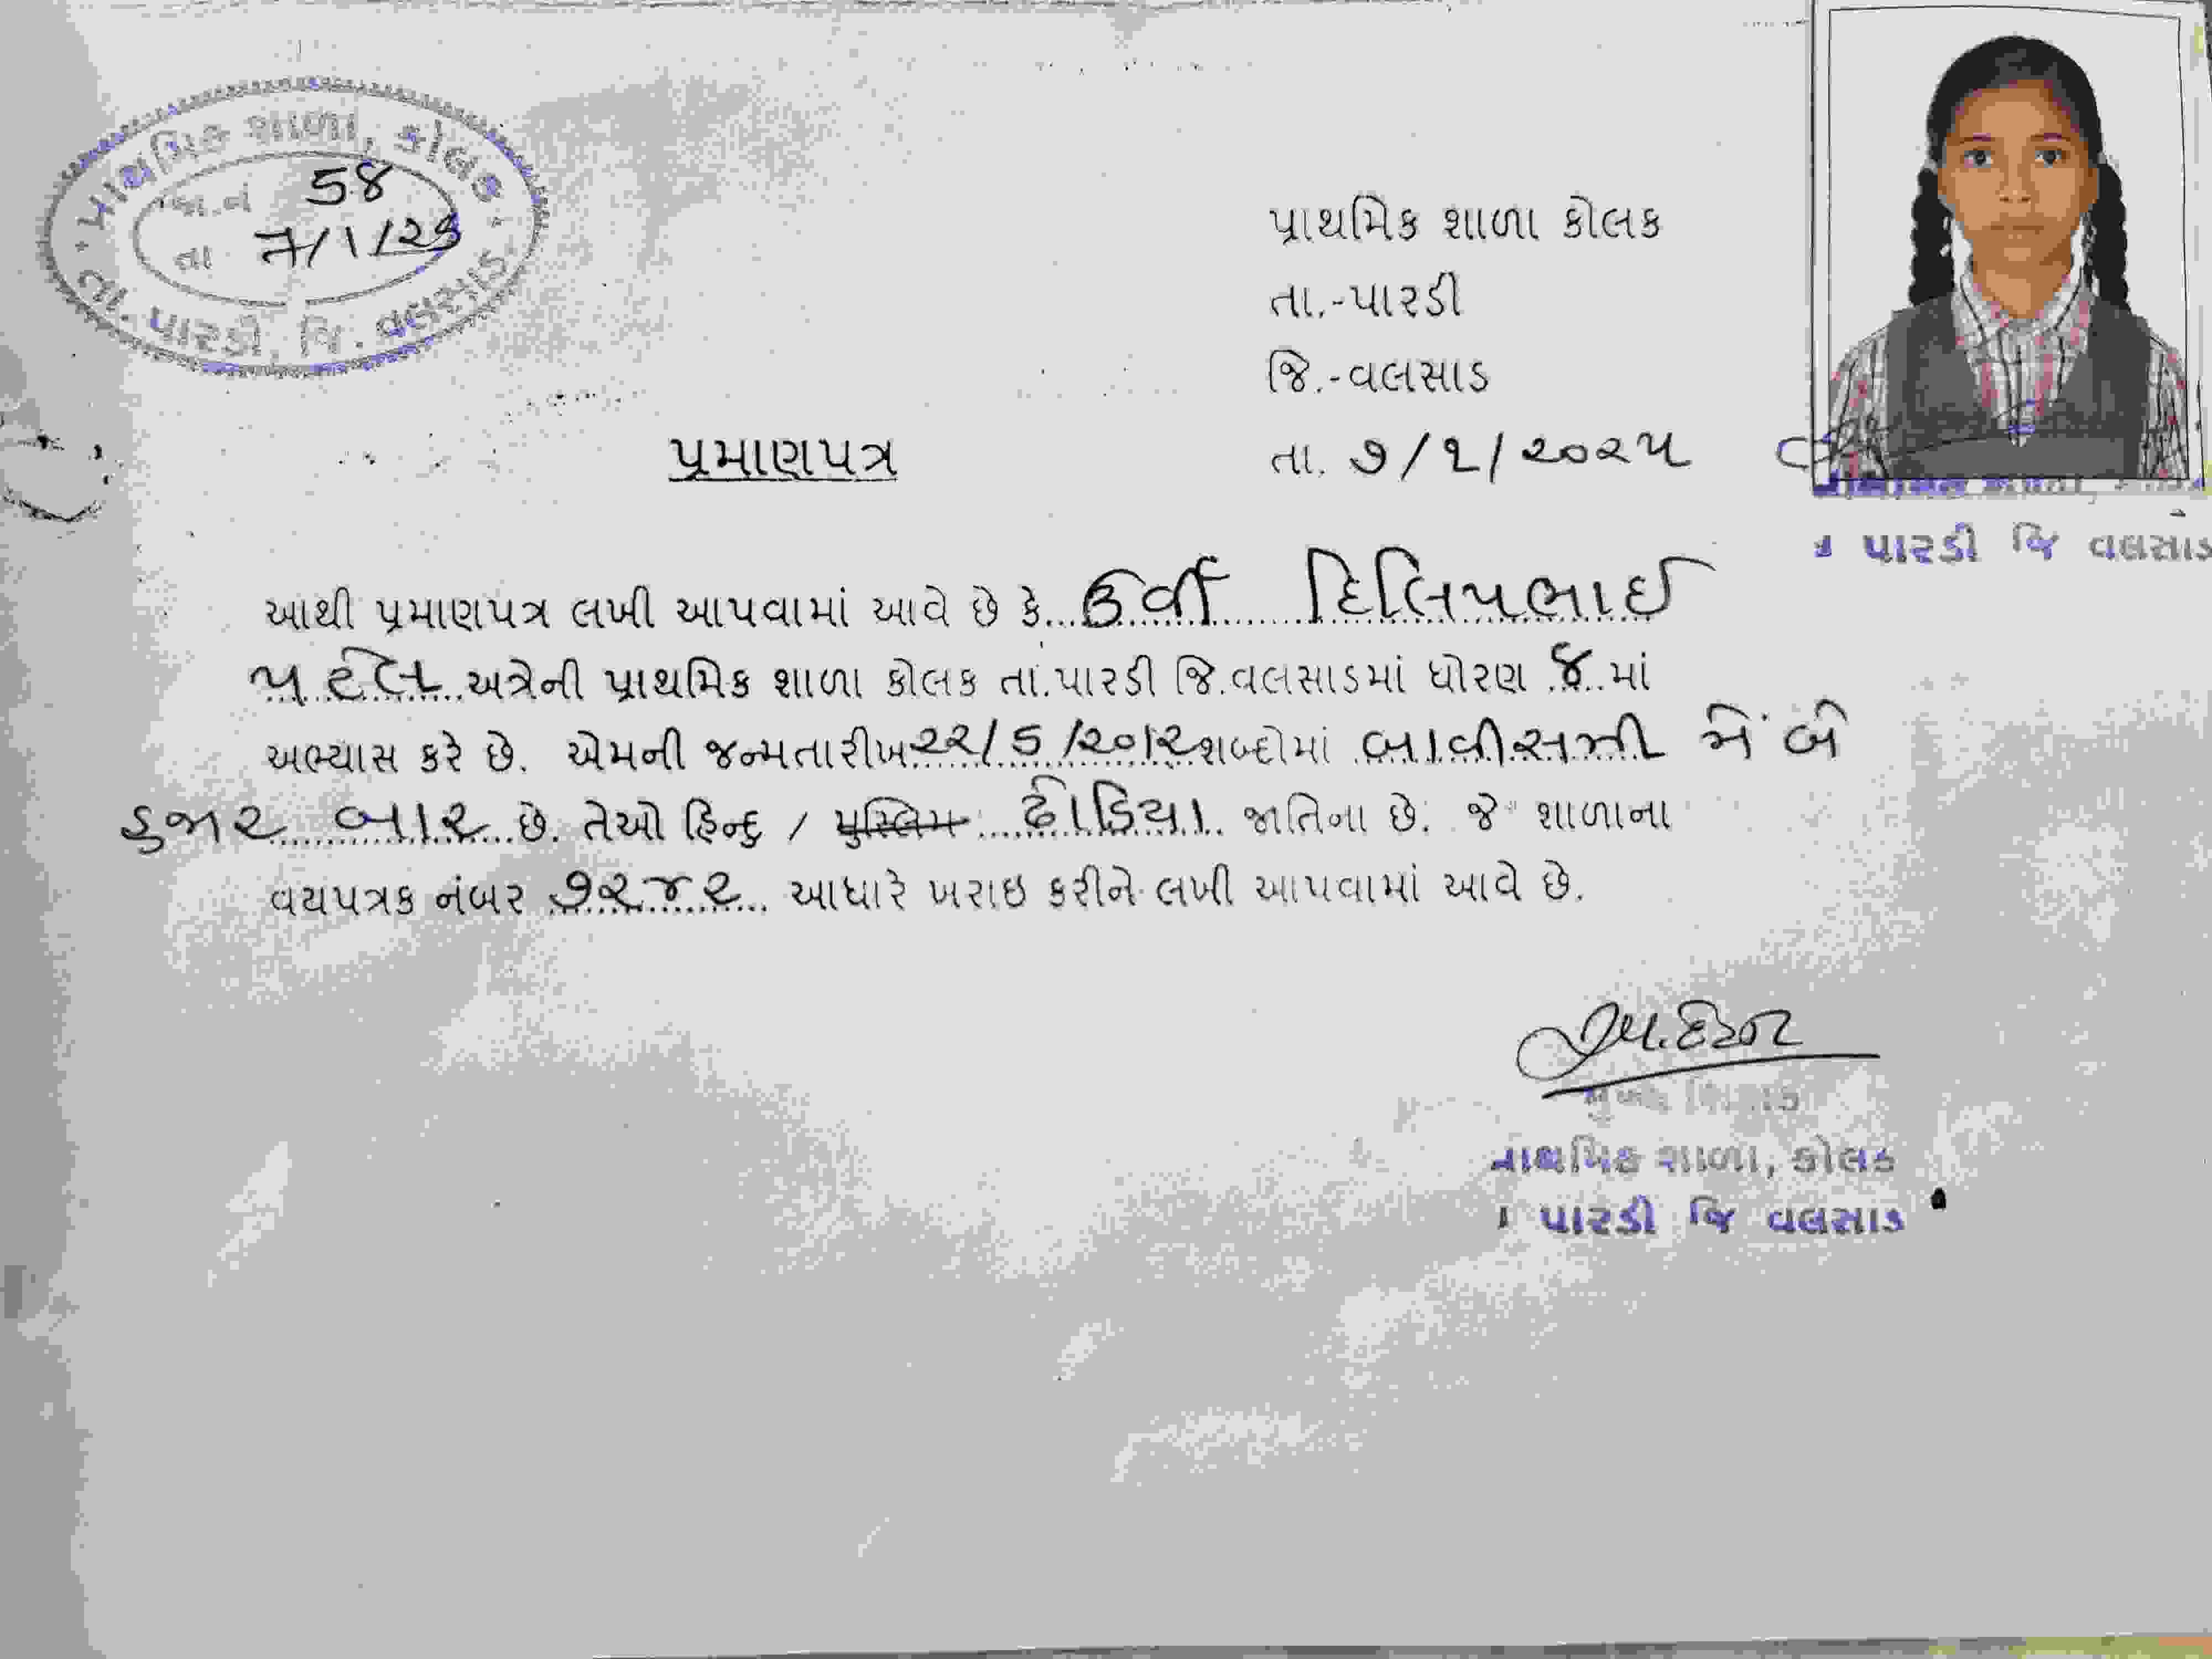 પ્રાથમિક શાળા, કોલક
જા.નં 58
તા 7/1/25
તા. પારડી, જિ. વલસાડ
પ્રાથમિક શાળા કોલક
તા.-પારડી
જિ.-વલસાડ
તા. ૭/૧/૨૦૨૫
પ્રમાણપત્ર
પારડી જિ વલસાડ
આથી પ્રમાણપત્ર લખી આપવામાં આવે છે કે ઉર્વી દિલિપભાઈ
પટેલ અત્રેની પ્રાથમિક શાળા કોલક તા.પારડી જિ.વલસાડમાં ધોરણ ૪ માં
અભ્યાસ કરે છે. એમની જન્મતારીખ ૨૨/૫/૨૦૧૨ શબ્દોમાં બાવીસમી મે બે
હજાર બાર છે. તેઓ હિન્દુ / મુસ્લિમ ઢોડિયા જાતિના છે. જે શાળાના
વયપત્રક નંબર ૭૨૪૨ આધારે ખરાઇ કરીને લખી આપવામાં આવે છે.
પ્રાથમિક શાળા, કોલક
પારડી જિ વલસાડ